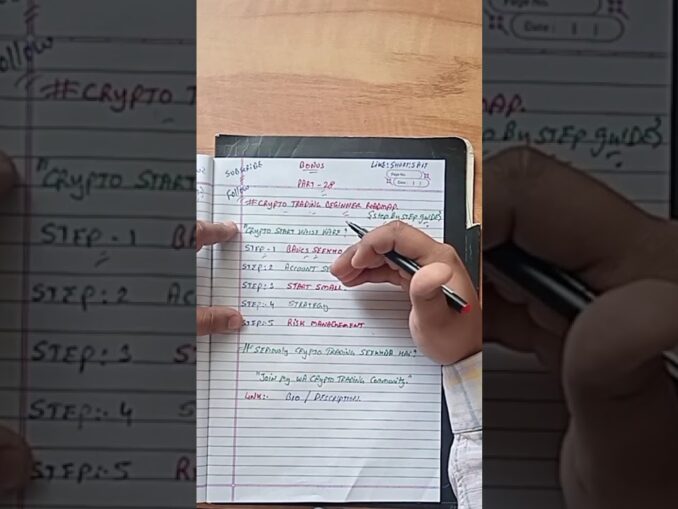 Subscribe
Follow
BONUS
LIKE:SHORT:SAV
Page No.
Date:
PART-28
#CRYPTO TRADING BEGINNER ROADMAP.
{STEP By STEP guide}
"CRYPTO START
STEP-1 BASICS SEEKHO
STEP:2 ACCOUNT
STEP:3 START SMALL
STEP:-4 STRATEGY
STEP:-5 RISK MANAGEMENT
SERIOUSLY CRYPTO TRADING SEEKHNA HAI?
"JOIN My WA CRYPTO TRADING Community."
LINK:- BIO / DESCRIPTION